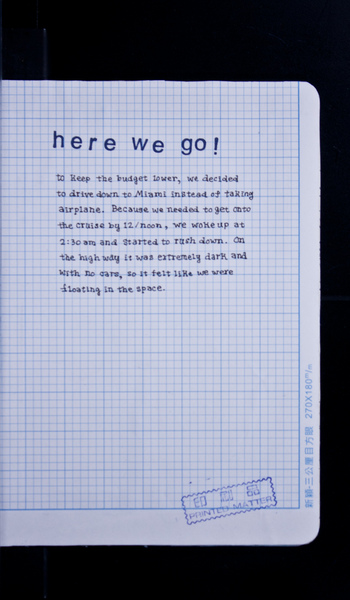 here we go!
to keep the budget lower, we decided
to drive down to Miami instead of taking
airplane. Because we needed to get onto
the cruise by 12/noon, we woke up at
2:30 am and started to rush down. On
the high way it was extremely dark and
with no cars, so it felt like we were
floating in the space.
印刷品
PRINTED MATTER
新穎·三公厘目方眼 270X180m/m